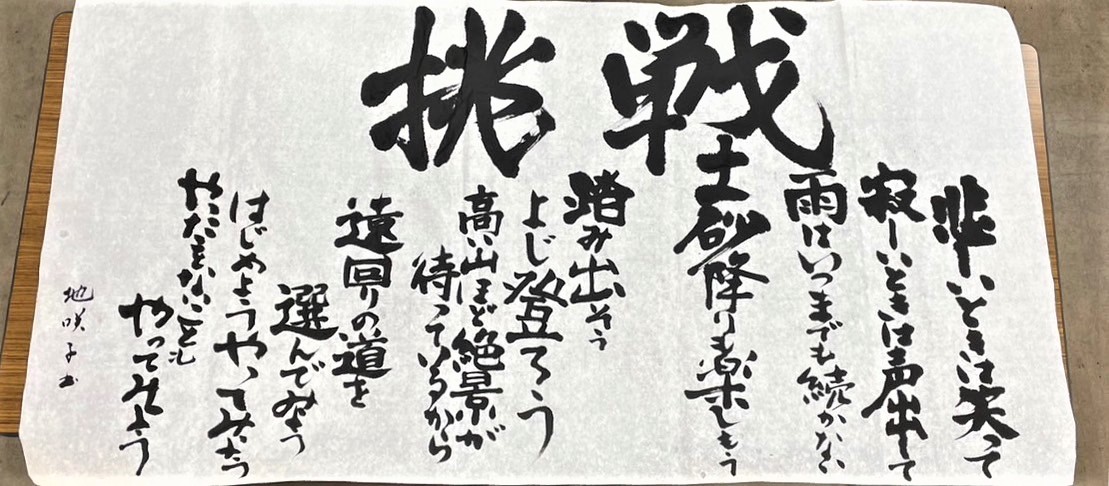 挑戦
悲しいときは笑って
寂しいときは声出して
雨はいつまでも続かない
土砂降りも楽しもう
踏み出そう
よじ登ろう
高い山ほど絶景が
待っているから
遠回りの道を
選んでみよう
はじめようやってみよう
やったことないことも
やってみよう
地咲子書